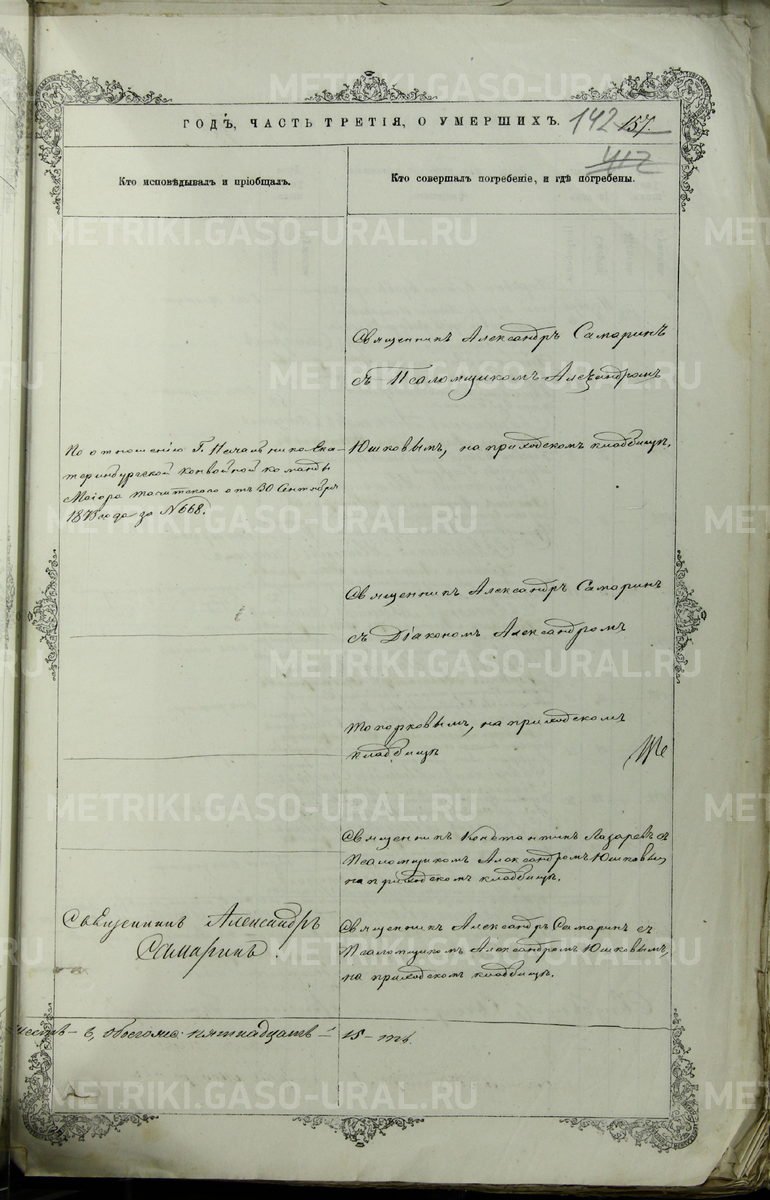 ГОДЪ, ЧАСТЬ ТРЕТІЯ, О УМЕРШИХЪ.
142
157.
412
Кто исповѣдывалъ и пріобщалъ.
Кто совершалъ погребеніе, и гдѣ погребены.
Священникъ Александръ Самаринъ
съ Псаломщикомъ Александромъ
Юшковымъ, на приходскомъ кладбищѣ.
По отношенію Г. Начальника Ека-
теринбургской конвойной команды
Маіора отъ 30 Сентября
1875 года за №668.
Священникъ Александръ Самаринъ
съ Діакономъ Александромъ
Топорковымъ, на приходскомъ
кладбищѣ
Священникъ Константинъ Лазаревъ съ
Псаломщикомъ Александромъ Юшковым
на приходскомъ кладбищѣ.
Священникъ Александръ
Самаринъ.
Священникъ Александръ Самаринъ съ
Псаломщикомъ Александромъ Юшковымъ,
на приходскомъ кладбищѣ.
шесть - 6, обоего пятнадцать - 15 - ть.
METRIKI.GASO-URAL.RU